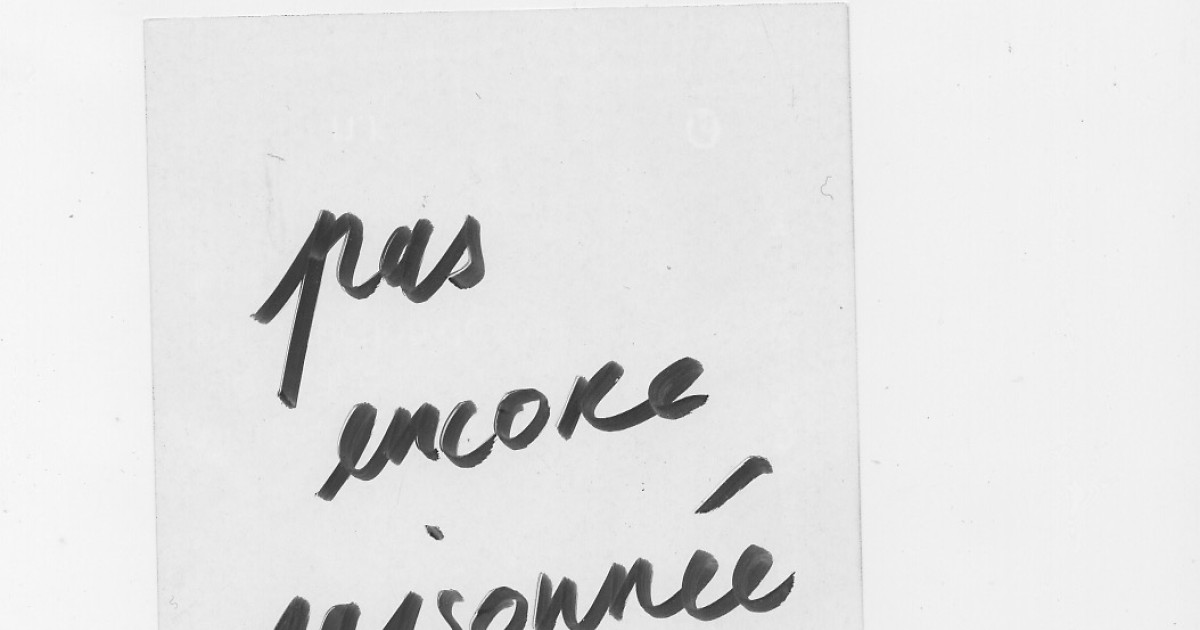 pas
encore
raisonnée